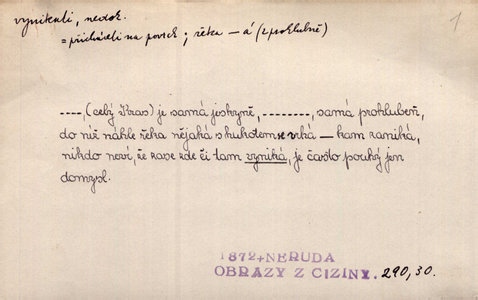 vynikati, nedok.
= přicházeti na povrch; řeka – á (z proklubně)
1
----, (celý Kras) je samá jeskyně, --------, samá prokluběň,
do níž náhle řeka nějaká s hukotem se vrhá – kam zaniká,
nikdo neví, že zase zde či tam vyniká, je často pouhý jen
domysl.
1872+NERUDA
OBRAZY Z CIZINY. 290,30.